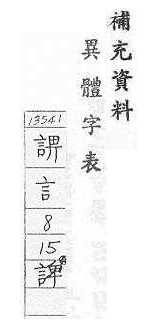 補充資料
異體字表
13541
諤
言
8
15
諢